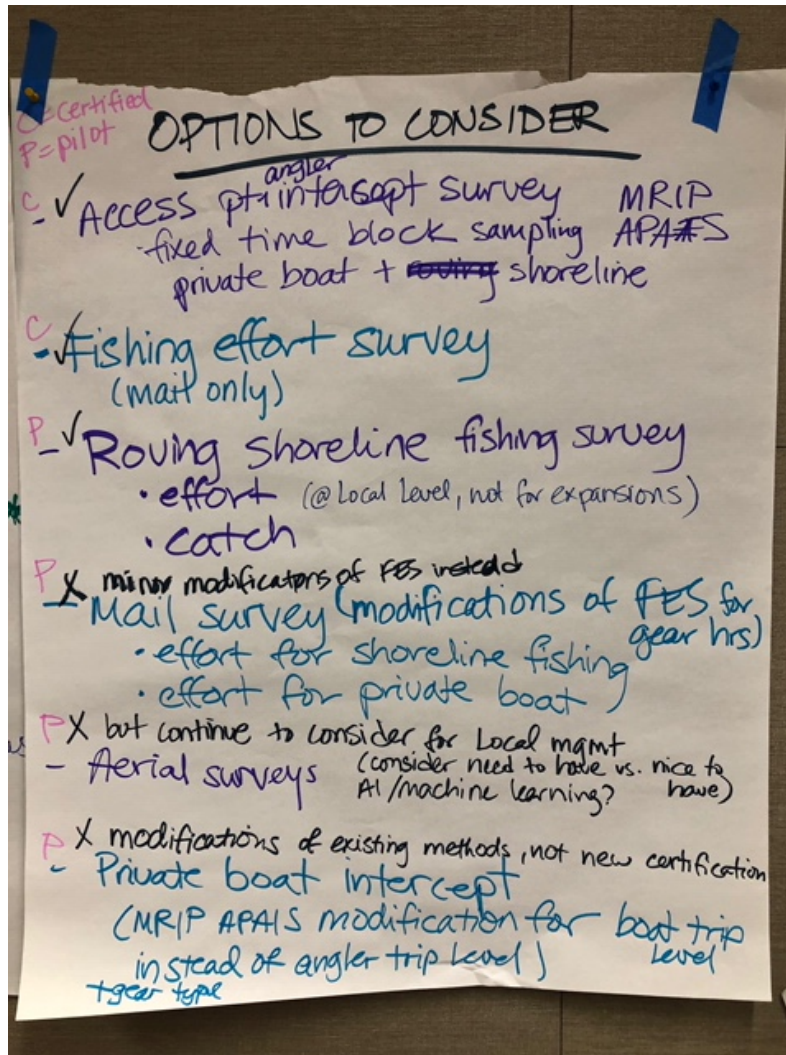 C=certified
P=pilot
OPTIONS TO CONSIDER
angler
C - ✓ Access pt intercept survey MRIP
·fixed time block sampling APAIS
private boat + roving shoreline
C - ✓ Fishing effort survey
(mail only)
P - ✓ Roving shoreline fishing survey
· effort (@ Local Level, not for expansions)
· catch
P X minor modifications of FES instead
- Mail survey (modifications of FES for
gear hrs)
· effort for shoreline fishing
· effort for private boat
P X but continue to consider for Local mgmt
- Aerial surveys (consider need to have vs. nice to
AI/machine learning? have)
P X modifications of existing methods, not new certification
- Private boat intercept
(MRIP APAIS modification for boat trip
instead of angler trip level) Level
+gear type